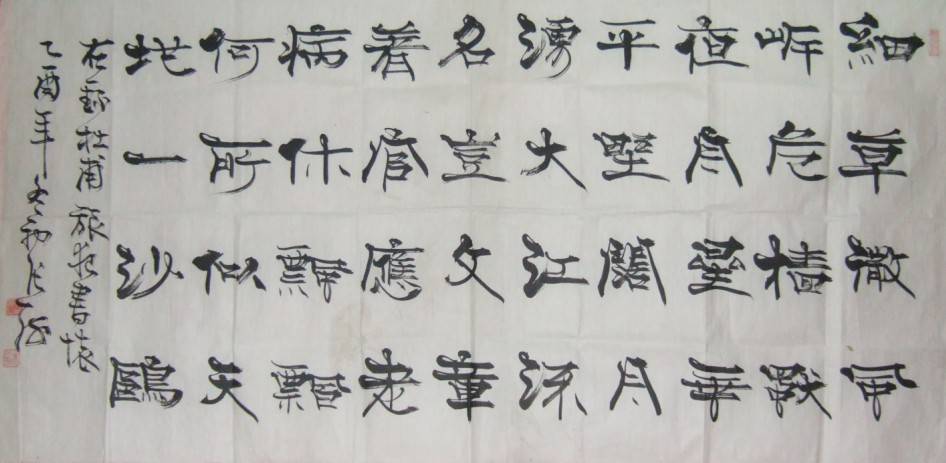 細草微風
岸危檣獨
夜舟星垂
平野闊月
湧大江流
名豈文章
著官應老
病休飄飄
何所似天
地一沙鷗
右錄杜甫旅夜書懷
乙酉年冬初